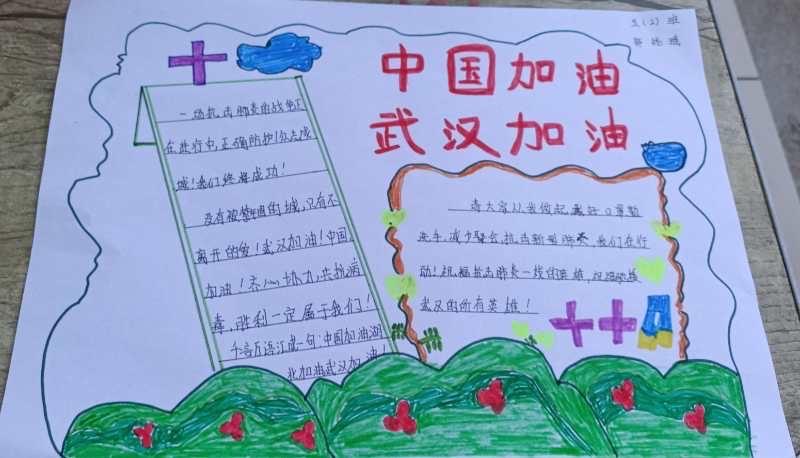 五(2)班
中国加油
武汉加油
一场抗击肺炎的战争正
在进行中,正确防护!众志成
城!我们终将成功!
没有被禁锢的城,只有不
离开的爱!武汉加油!中国
加油!齐心协力,共抗病
毒,胜利一定属于我们!
千言万语汇成一句:中国加油湖
北加油武汉加油!
请大家从我做起,戴好口罩勤
洗手,减少聚会,抗击新型肺炎,我们在行
动!祝福抗击肺炎一线的英雄,
武汉的所有英雄!